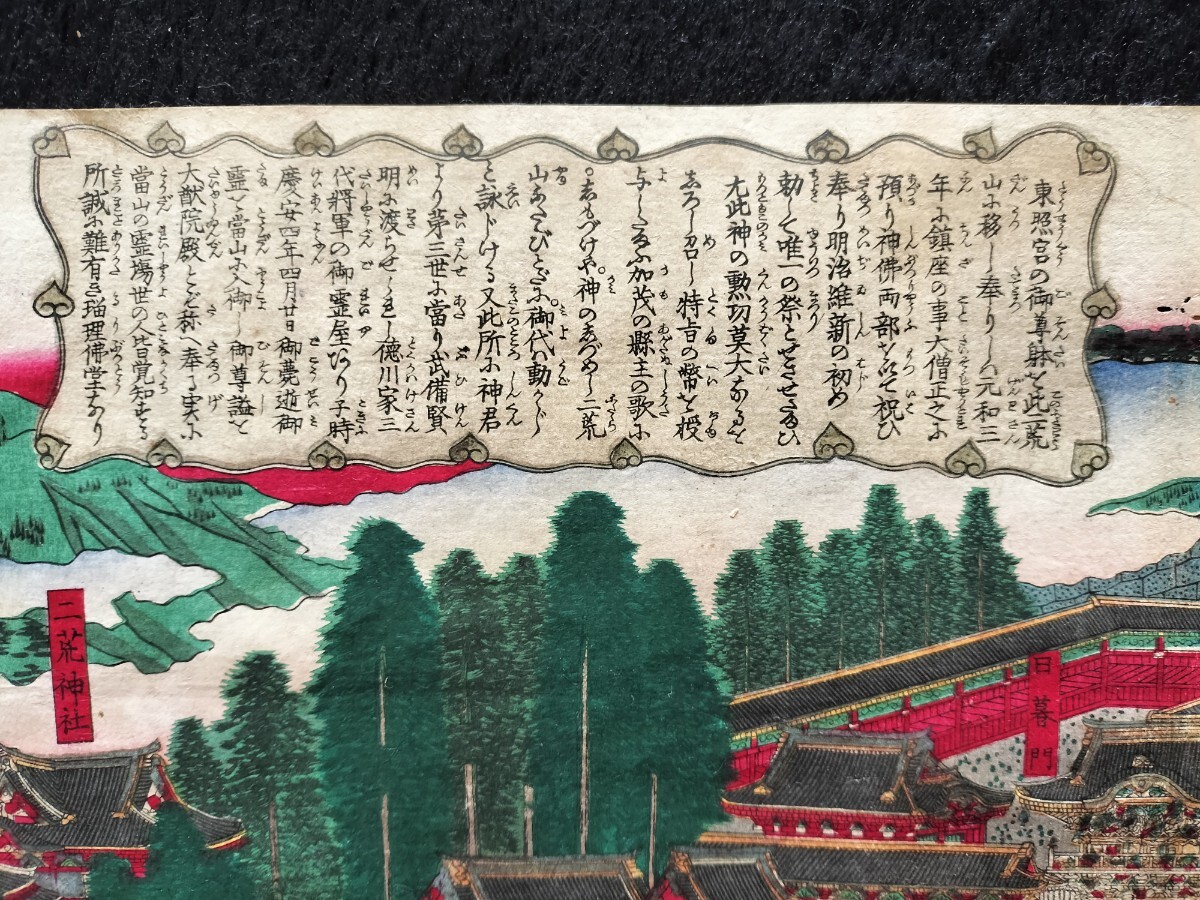 東照宮の御尊躰を此二荒
山に移し奉りしハ元和三
年に鎮座の事大僧正之に
預り神佛両部を以て祝ひ
奉り明治維新の初め
勅して唯一の祭とせさせ給ひ
尤此神の勲功莫大なるを
しろし召し特旨の幣を授
与したる加茂の縣主の歌に
しもつけや神のしづめし二荒
山ふたゝびとだに御代ハ動かじ
と詠じける又此所に神君
より第三世に當り武備賢
明に渡らせられし徳川家三
代將軍の御霊屋あり子時
慶安四年四月廿日御薨逝御
霊を當山に入御し御尊謚を
大猷院殿とぞ称へ奉る実に
當山の霊場世の人皆覚知する
所誠に難有き瑠理佛堂なり
二荒神社
日暮門